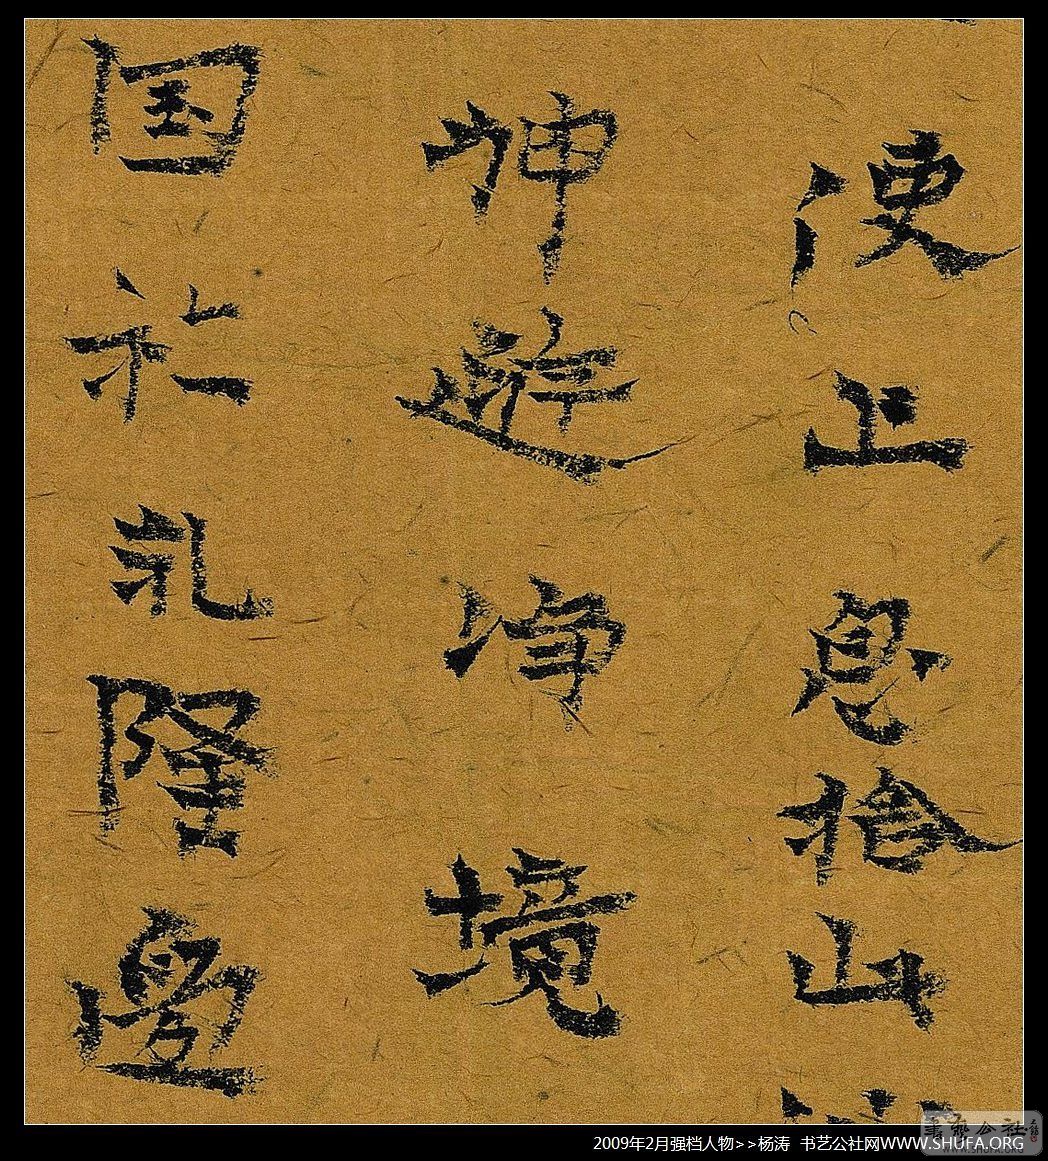 便止息捨山
神遊净境
国於礼隆
2009年2月强档人物>>杨涛 书艺公社网WWW.SHUFA.ORG